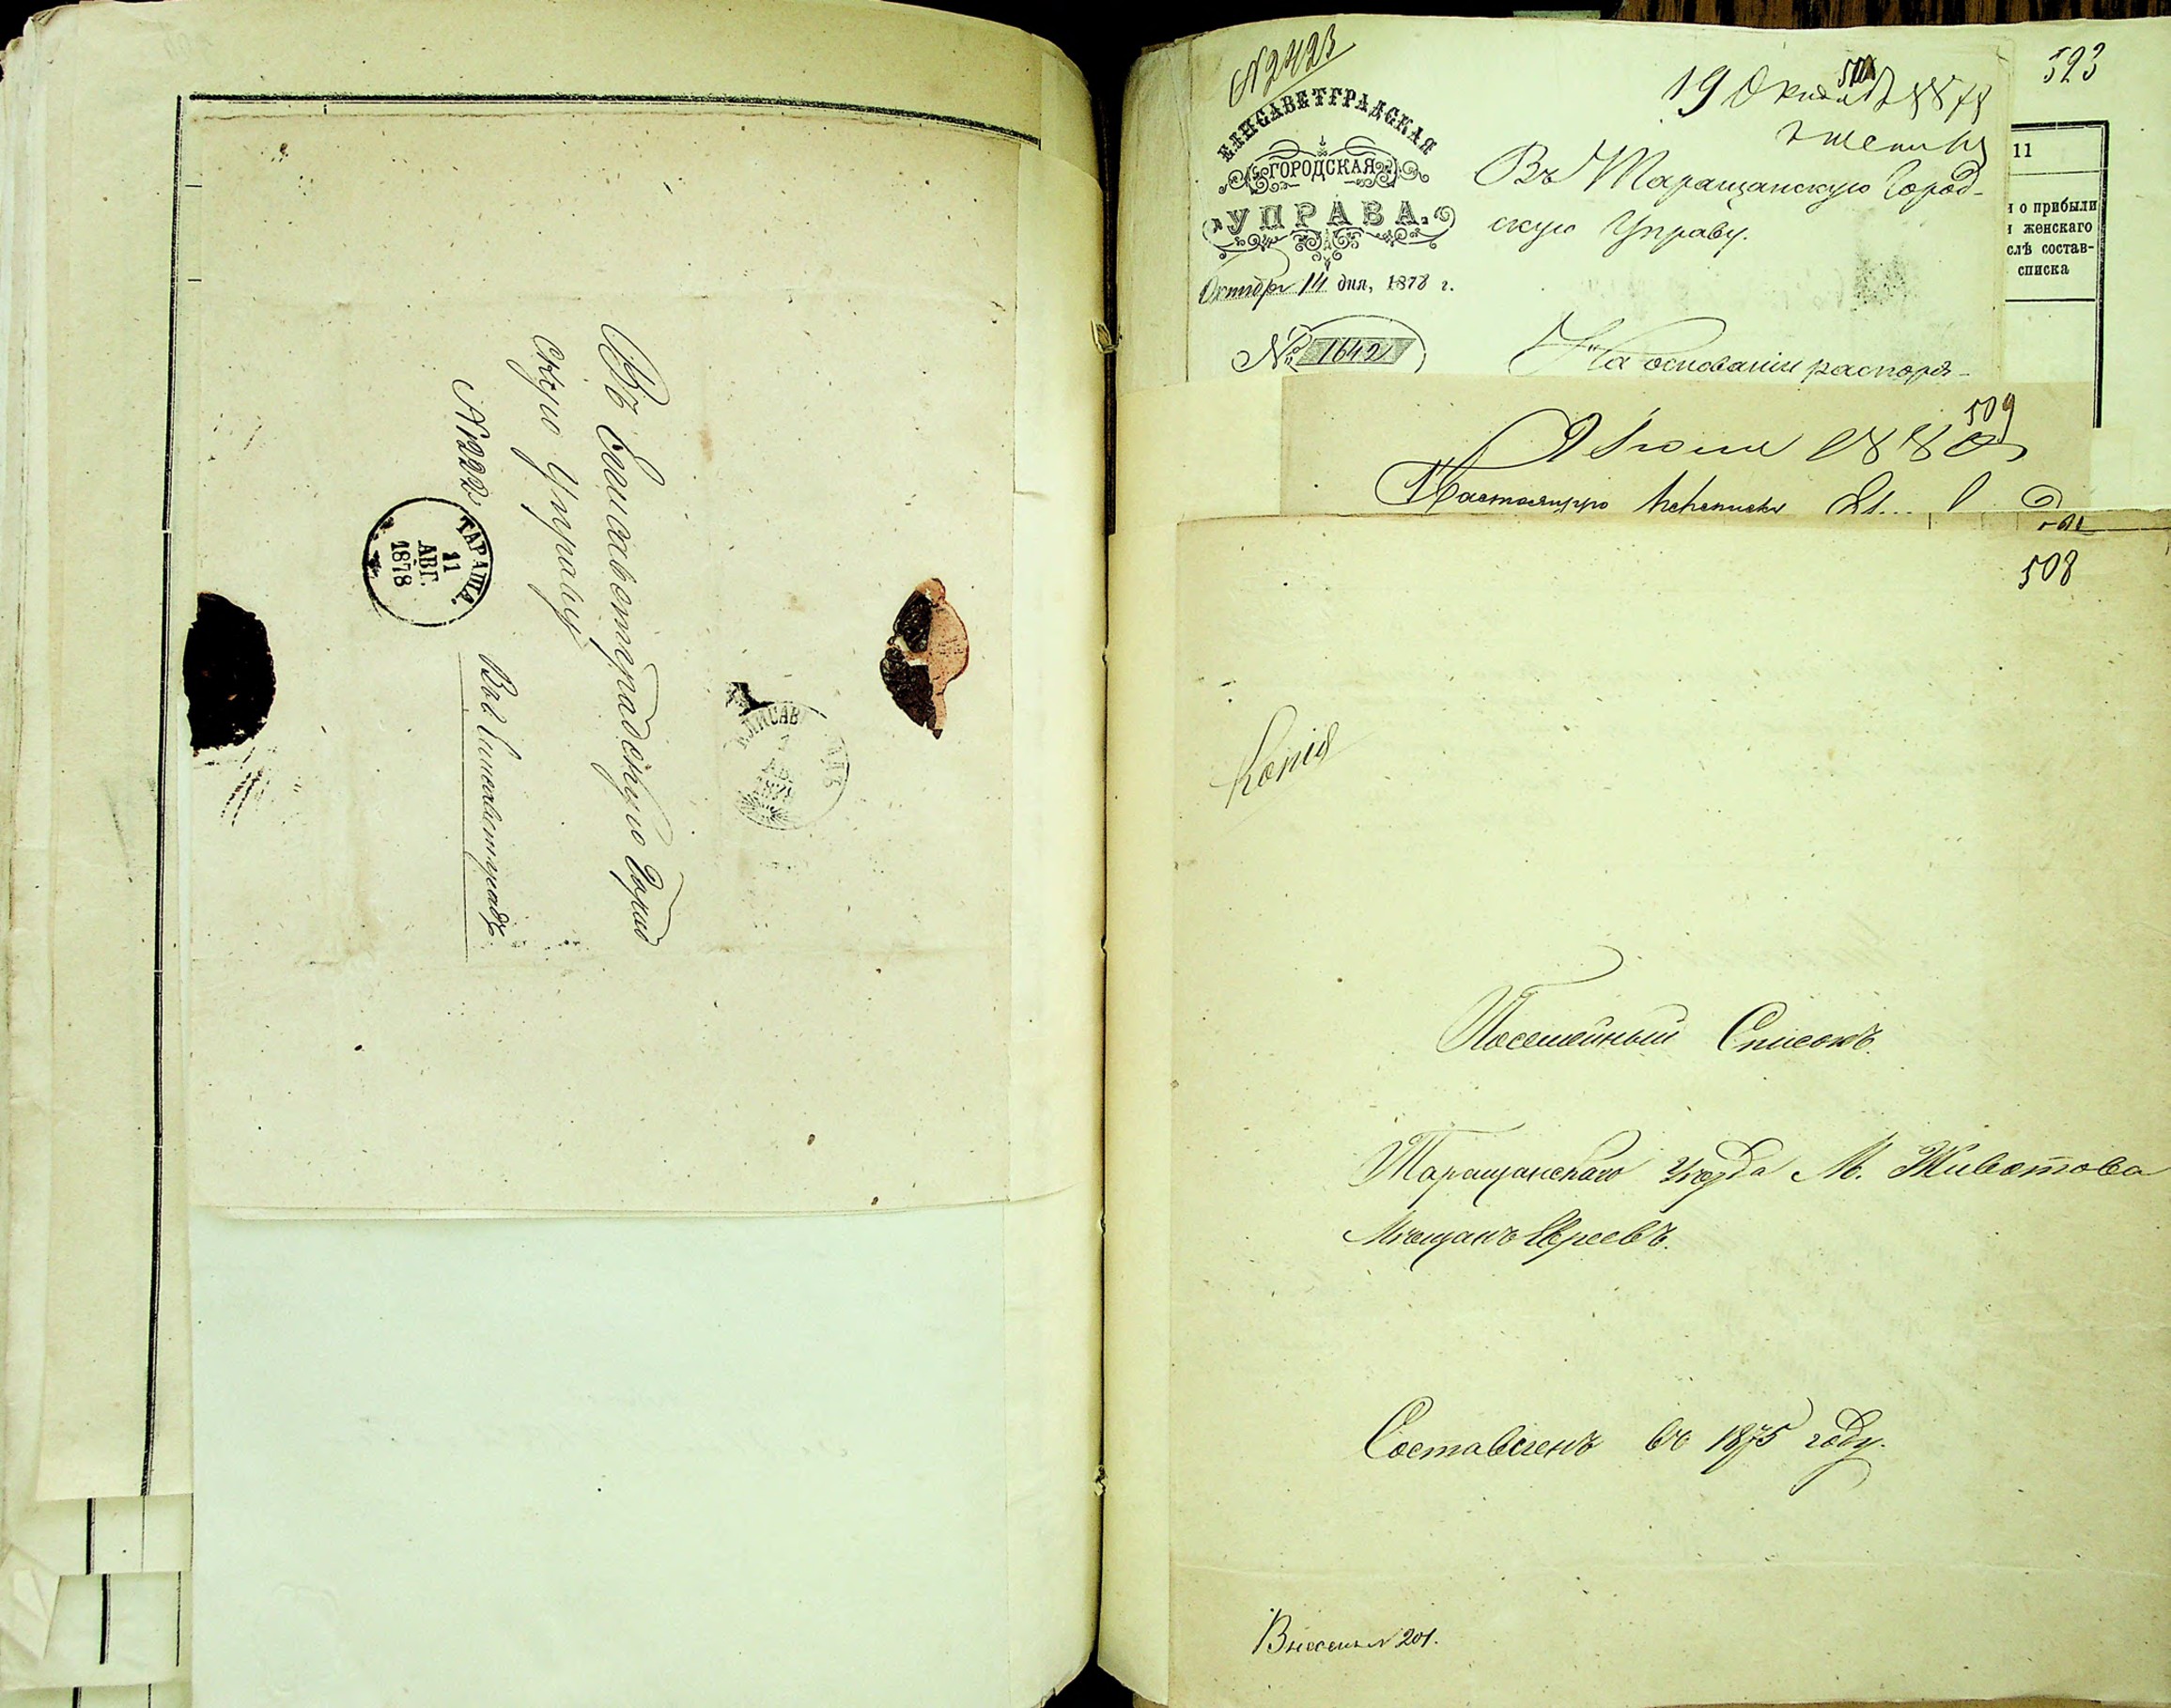 Въ Елисаветградскую Город
скую Управу
№1222
ТАРАЩА.
11
АВГ.
1878
Въ Елисаветградъ.
ЕЛИСАВ
№2423
19 Октября 1878
523
ЕЛИСАВЕТГРАДСКАЯ
ГОРОДСКАЯ
УПРАВА.
Октября 14 дня, 1878 г.
№ 1642
Въ Таращанскую Город-
скую Управу.
На основаніи распоря-
11
о прибыли
женскаго
слѣ состав-
списка
509
Іюня 188
Настоящую переписку
508
Копія
Посемейный Списокъ.
Таращанскаго Уѣзда М. Животова
Мѣщанъ Евреевъ.
Составленъ въ 1875 году.
№ 201.